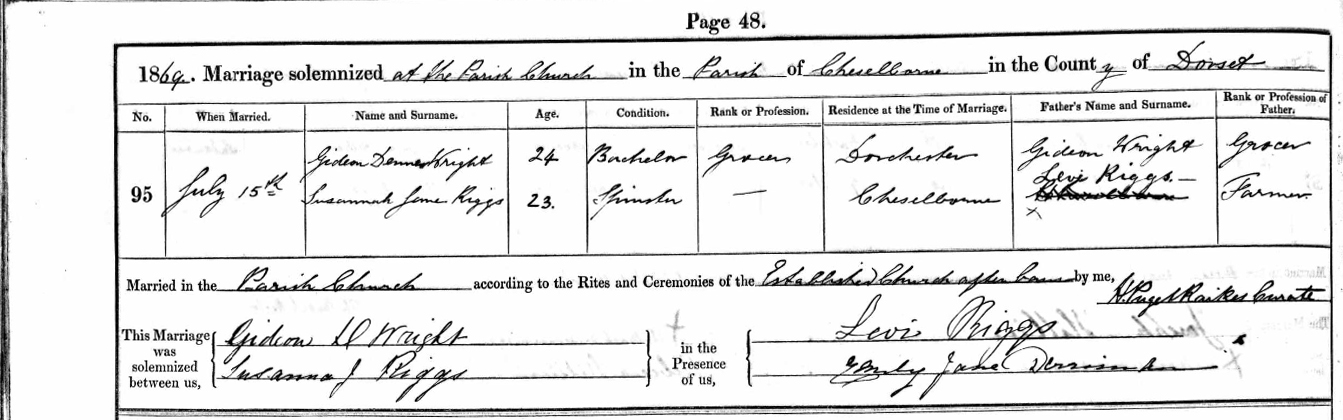 Page 48.
1869. Marriage solemnized at the Parish Church in the Parish of Cheselborne in the County of Dorset
No. When Married. Name and Surname. Age. Condition. Rank or Profession. Residence at the Time of Marriage. Father's Name and Surname. Rank or Profession of Father.
95 July 15th
Gideon Dennes Wright 24 Bachelor Grocer Dorchester Gideon Wright Grocer
Susannah Jane Riggs 23. Spinster — Cheselborne Levi Riggs — Farmer
Married in the Parish Church according to the Rites and Ceremonies of the Established Church after banns by me, H. Puget Raikes Curate
This Marriage was solemnized between us,
Gideon D Wright
Susanna J Riggs
in the Presence of us,
Levi Riggs
Emily Jane